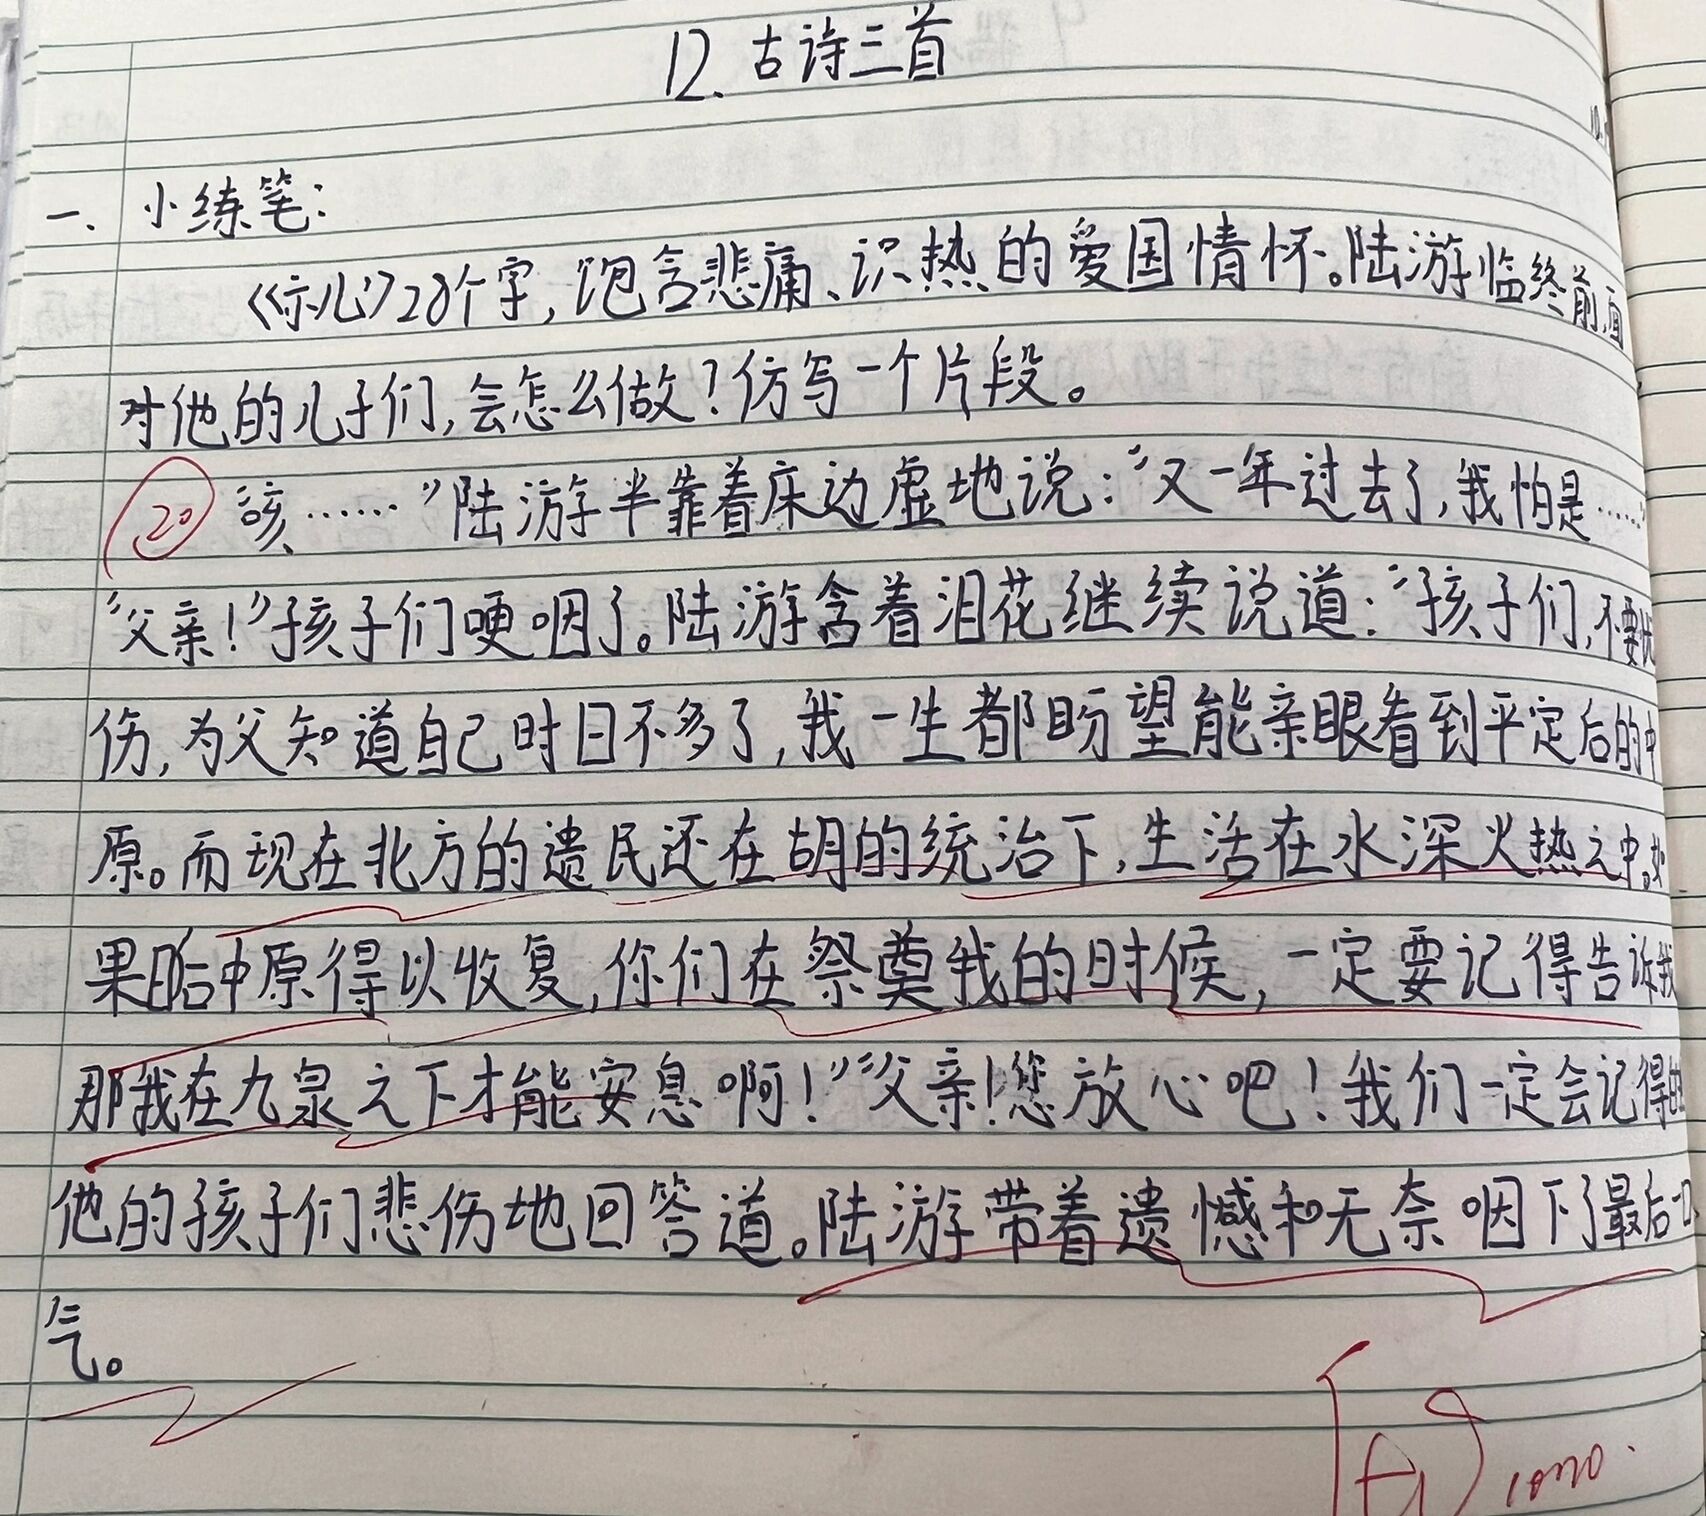 12. 古诗三首
一、小练笔:
《示儿》28个字,饱含悲痛、识热的爱国情怀。陆游临终前,面
对他的儿子们,会怎么做?仿写一个片段。
20 咳……”陆游半靠着床边虚地说:“又一年过去了,我怕是……
“父亲!”孩子们哽咽了。陆游含着泪花继续说道:“孩子们,不要忧
伤,为父知道自己时日不多了,我一生都盼望能亲眼看到平定后的中
原。而现在北方的遗民还在胡的统治下,生活在水深火热之中。如
果日后中原得以收复,你们在祭奠我的时候,一定要记得告诉我
那我在九泉之下才能安息啊!”“父亲!您放心吧!我们一定会记得的
他的孩子们悲伤地回答道。陆游带着遗憾和无奈咽下了最后一口
气。